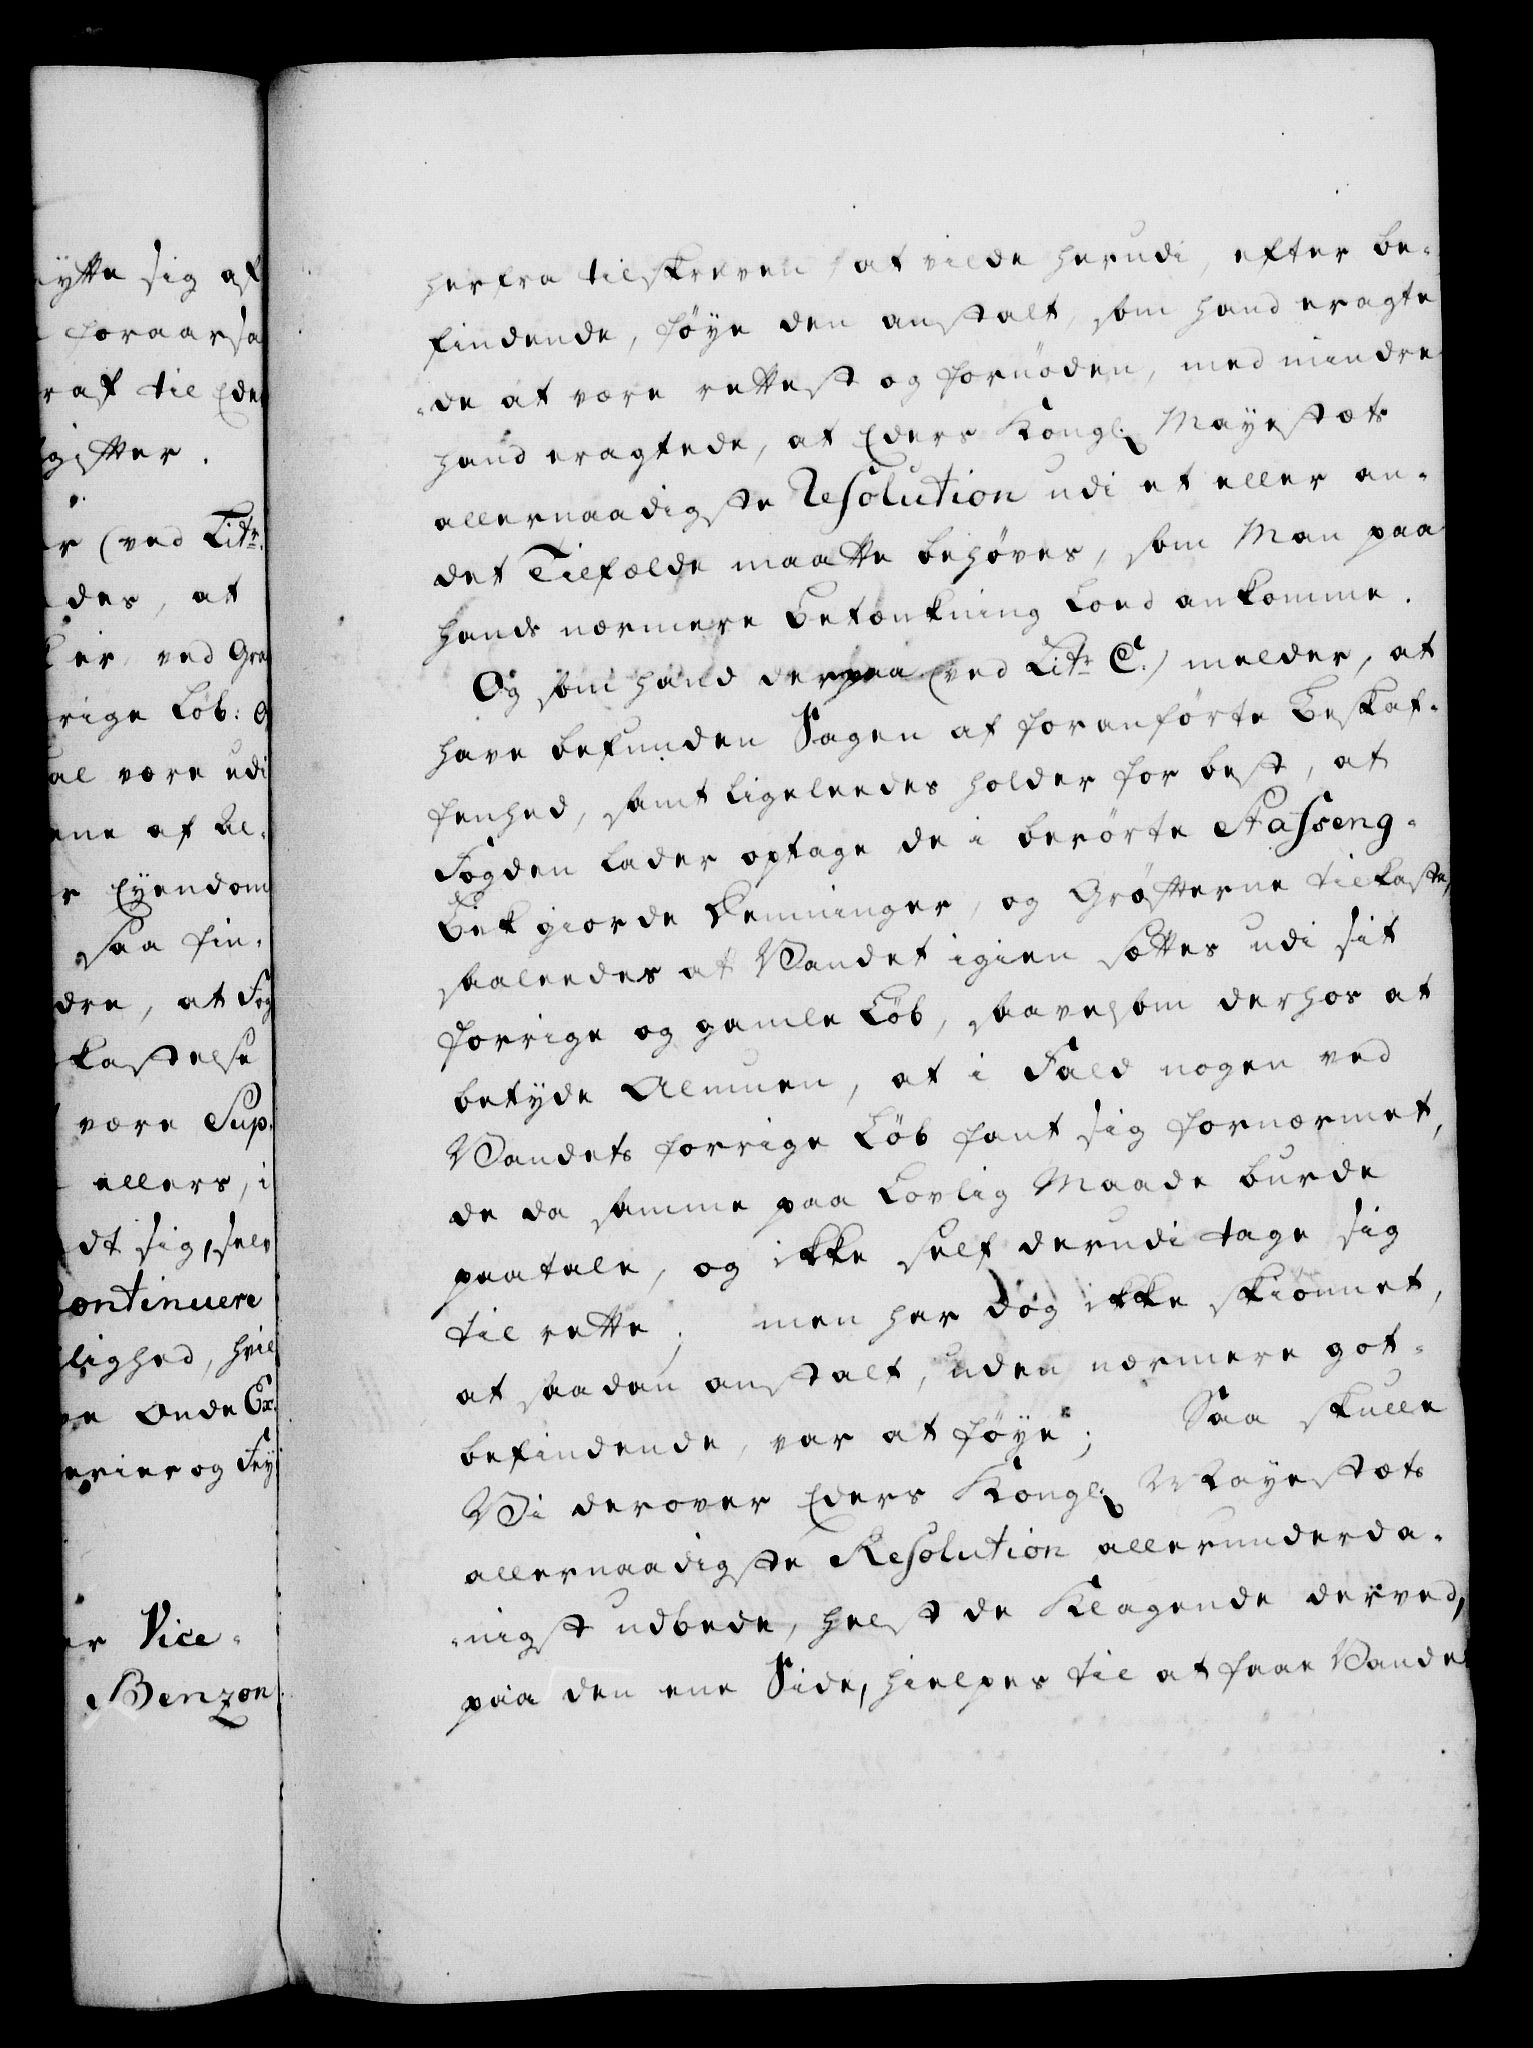 ytte sig af
foraarsa
raf til Eder
gifter.
er (ved Litr.
des, at
er, ved Gra
rige Løb: O
al være udi
ene af Al-
r Eyendom
saa fin-
dre, at Fog
kastelse
være Sup-
ellers, i
dt sig selv
continuere
lighed, hvil
onde Ex-
erier og Fey
er Vice-
Benzon
herfra tilskreven, at vilde herudi, efter be-
findende, føye den anstalt, som hand eragte
-de at være rettest og fornøden, med mindre
hand eragtede, at Eders Kongl: Mayestæts
allernaadigste Resolution udi et eller an-
det Tilfælde maatte behøves, som Man paa
hands nærmere Betænkning loed ankomme.
Og som hand derpaa (ved Litr C.) melder, at
have befunden Sagen af foranførte Beskaf-
fenhed, samt ligeleedes holder for best, at
Fogden lader optage de i berørte Stasseng-
Bek giorde Demninger, og Grøfterne tilkaste,
saaleedes at Vandet igien sættes udi sit
forrige og gamle Løb, saavelsom derhos at
betyde Almuen, at i Fald nogen ved
Vandets forrige Løb fant sig fornærmet,
de da samme paa Lovlig Maade burde
paatale, og ikke self derudi tage sig
til rette; men har dog ikke skiønnet,
at saadan anstalt, uden nærmere got-
befindende, var at føye; Saa skulle
Vi derover Eders Kongl: Mayestæts
allernaadigste Resolution allerunderda-
-nigst udbede, helst de Klagende derved,
paa den ene Side, hielpes til at faae Vande